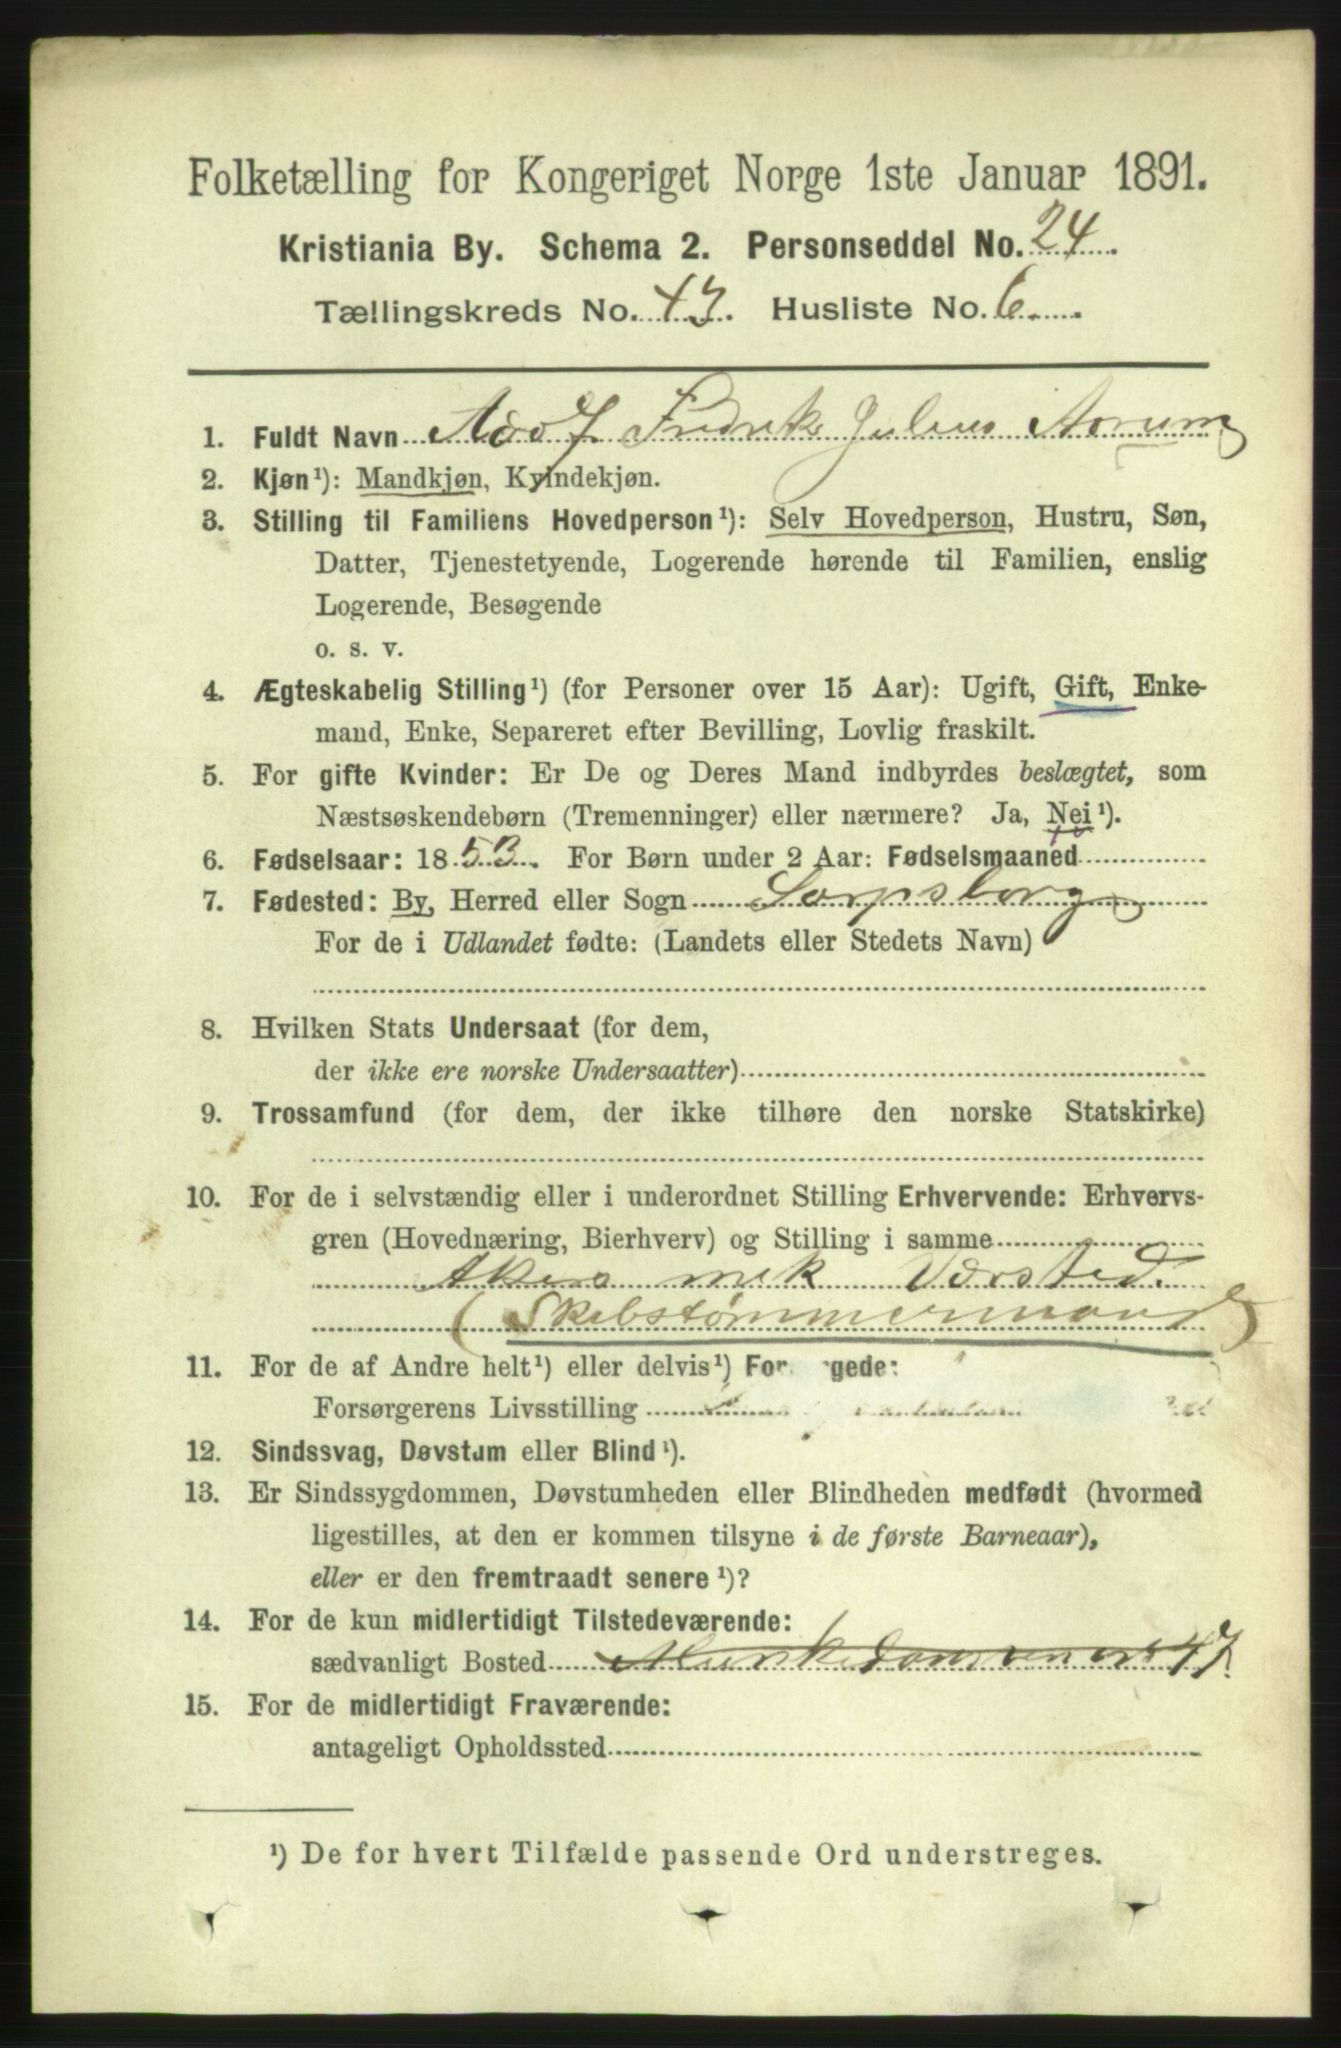 Folketælling for Kongeriget Norge 1ste Januar 1891.
Kristiania By. Schema 2. Personseddel No. 24.
Tællingskreds No. 43. Husliste No. 6.
1. Fuldt Navn Adolf Fredrik Julius
2. Kjøn¹): Mandkjøn, Kvindekjøn.
3. Stilling til Familiens Hovedperson¹): Selv Hovedperson, Hustru, Søn,
Datter, Tjenestetyende, Logerende hørende til Familien, enslig
Logerende, Besøgende
o. s. v.
4. Ægteskabelig Stilling¹) (for Personer over 15 Aar): Ugift, Gift, Enke-
mand, Enke, Separeret efter Bevilling, Lovlig fraskilt.
5. For gifte Kvinder: Er De og Deres Mand indbyrdes beslægtet, som
Næstsøskendebørn (Tremenninger) eller nærmere? Ja, Nei¹).
6. Fødselsaar: 1853. For Børn under 2 Aar: Fødselsmaaned
7. Fødested: By, Herred eller Sogn Sarpsborg
For de i Udlandet fødte: (Landets eller Stedets Navn)
8. Hvilken Stats Undersaat (for dem,
der ikke ere norske Undersaatter)
9. Trossamfund (for dem, der ikke tilhøre den norske Statskirke)
10. For de i selvstændig eller i underordnet Stilling Erhvervende: Erhvervs-
gren (Hovednæring, Bierhverv) og Stilling i samme
Akers mek Værsted.
(Skibstømmermand)
11. For de af Andre helt¹) eller delvis¹) For gede:
Forsørgerens Livsstilling
12. Sindssvag, Døvstum eller Blind¹).
13. Er Sindssygdommen, Døvstumheden eller Blindheden medfødt (hvormed
ligestilles, at den er kommen tilsyne i de første Barneaar),
eller er den fremtraadt senere¹)?
14. For de kun midlertidigt Tilstedeværende:
sædvanligt Bosted 47
15. For de midlertidigt Fraværende:
antageligt Opholdssted
¹) De for hvert Tilfælde passende Ord understreges.